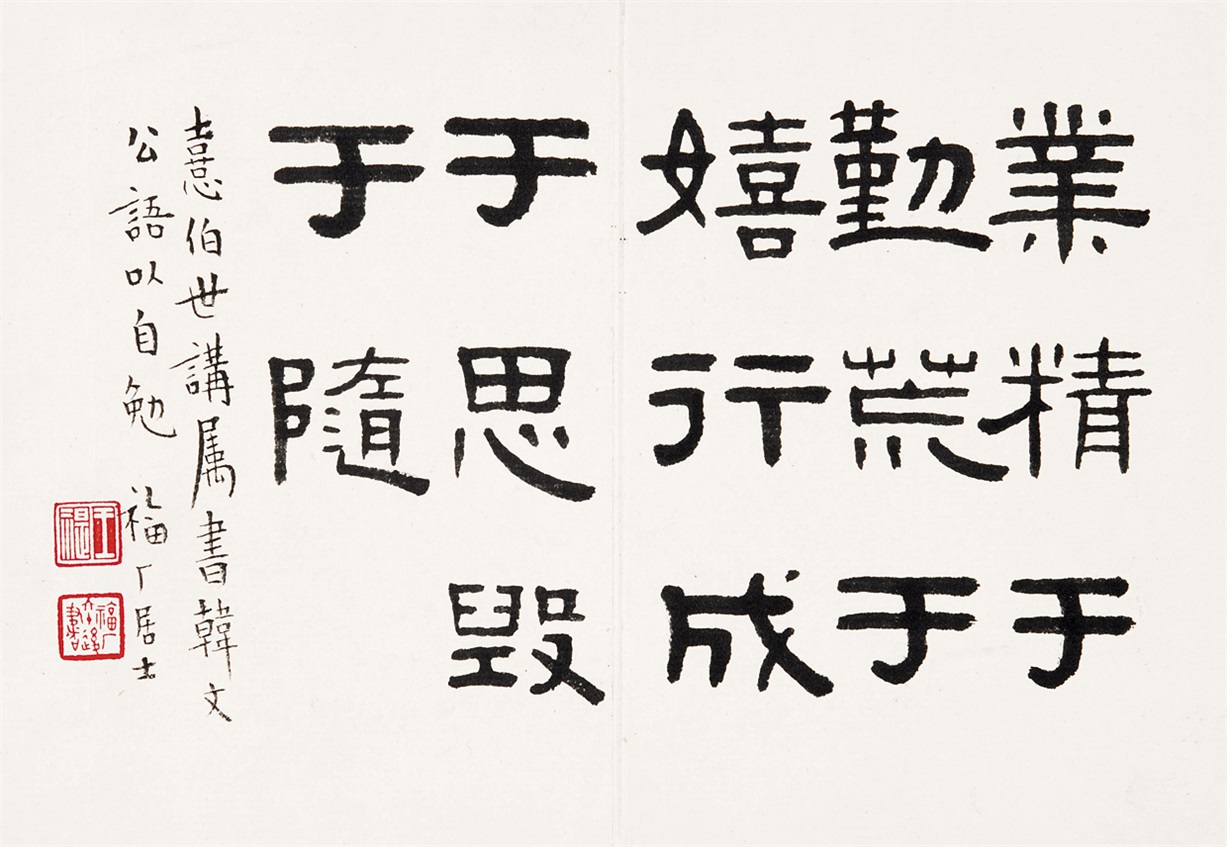 業精于
勤荒于
嬉行成
于思毀
于隨
憙伯世講属書韓文
公語以自勉 福厂居士
王禔
福厂六十後書